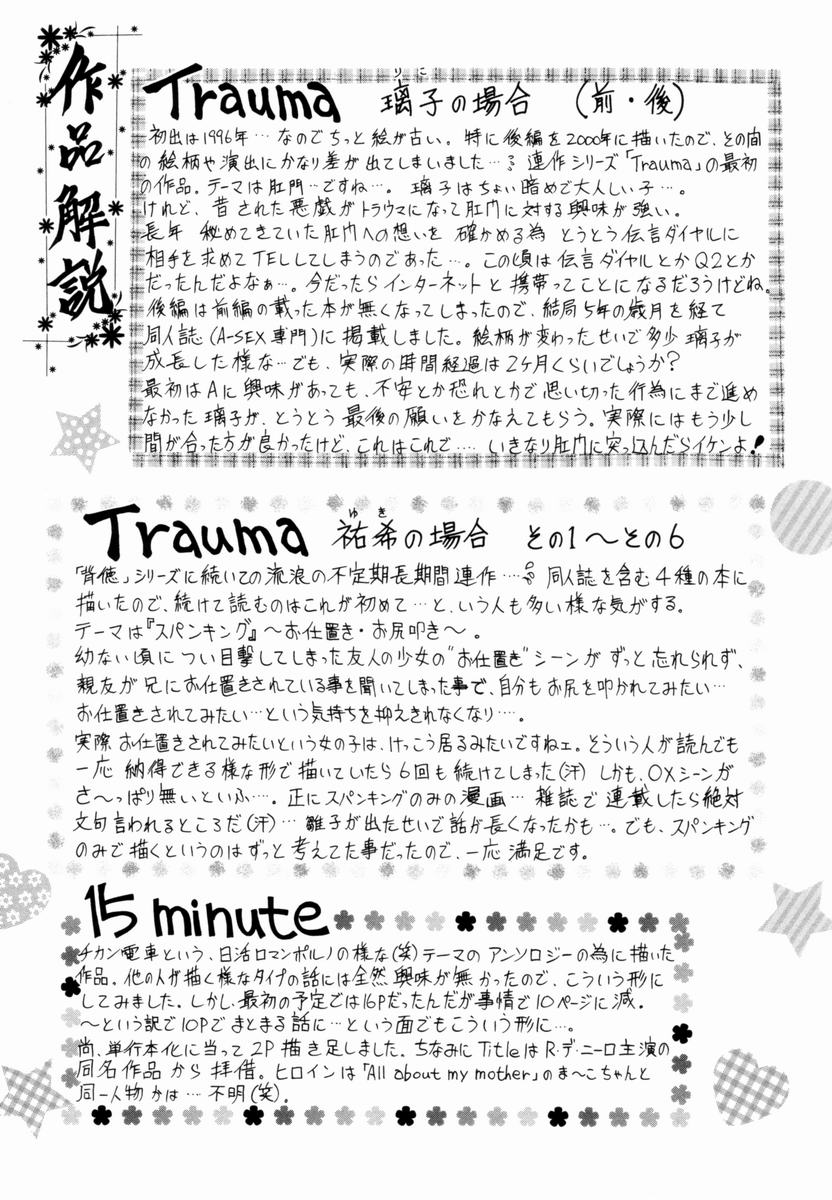 作品解説
Trauma 璃子の場合 (前・後)
りこ
初出は1996年…なのでちっと絵が古い。特に後編を2000年に描いたので、その間
の絵柄や演出にかなり差が出てしまいました…。連作シリーズ「Trauma」の最初
の作品。テーマは肛門…ですね…。璃子はちょい暗めで大人しい子…。
けれど、昔された悪戯がトラウマになって肛門に対する興味が強い。
長年 秘めてきていた肛門への想いを確かめる為 とうとう伝言ダイヤルに
相手を求めてTELしてしまうのであった…。この頃は伝言ダイヤルとかQ2とか
だったんだよなぁ…。今だったらインターネットと携帯ってことになるだろうけどね。
後編は前編の載った本が無くなってしまったので、結局5年の歳月を経て
同人誌(A-SEX専門)に掲載しました。絵柄が変わったせいで多少璃子が
成長した様な…でも、実際の時間経過は2ヶ月くらいでしょうか?
最初はAに興味があっても、不安とか恐れとかで思い切った行為にまで進め
なかった璃子が、とうとう最後の願いをかなえてもらう。実際にはもう少し
間が合った方が良かったけど、これはこれで…. いきなり肛門に突っ込んだらイケンよ!
Trauma 祐希の場合 その1〜その6
ゆき
「背徳」シリーズに続いての流浪の不定期長期間連作…。同人誌を含む4種の本に
描いたので、続けて読むのはこれが初めて…と、いう人も多い様な気がする。
テーマは『スパンキング』〜お仕置き・お尻叩き〜。
幼ない頃につい目撃してしまった友人の少女の"お仕置き"シーンがずっと忘れられず、
親友が兄にお仕置きされている事を聞いてしまった事で、自分もお尻を叩かれてみたい…
お仕置きされてみたい…という気持ちを抑えきれなくなり…。
実際お仕置きされてみたいという女の子は、けっこう居るみたいですねェ。そういう人が読んでも
一応 納得できる様な形で描いていたら6回も続けてしまった(汗) しかも、OXシーンが
さ〜っぱり無いといふ…。正にスパンキングのみの漫画…雑誌で連載したら絶対
文句言われるところだ(汗)…雛子が出たせいで話が長くなったかも…。でも、スパンキング
のみで描くというのはずっと考えてた事だったので、一応満足です。
15 minute
チカン電車という、日活ロマンポルノの様な(笑)テーマのアンソロジーの為に描いた
作品。他の人が描く様なタイプの話には全然興味が無かったので、こういう形に
してみました。しかし、最初の予定では16Pだったんだが事情で10ページに減.
〜という訳で10Pでまとまる話に…という面でもこういう形に…。
尚、単行本化に当って2P描き足しました。ちなみにTitleはR・デ・ニーロ主演の
同名作品から拝借。ヒロインは「All about my mother」のま〜こちゃんと
同一人物かは…不明(笑)。